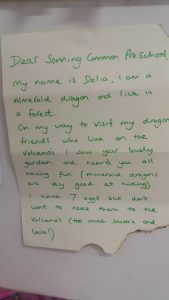 Dear Sonning Common Preschool,
My name is Delia, I am a
Almerald dragon and live in
a forest.
On my way to visit my dragon
friends who live on the
volcanos I saw your lovely
garden and heard you all
having fun (Almerald dragons
are very good at hiding).
I have 7 eggs but don't
want to take them to the
Volcanos (too much smoke and
lava!)